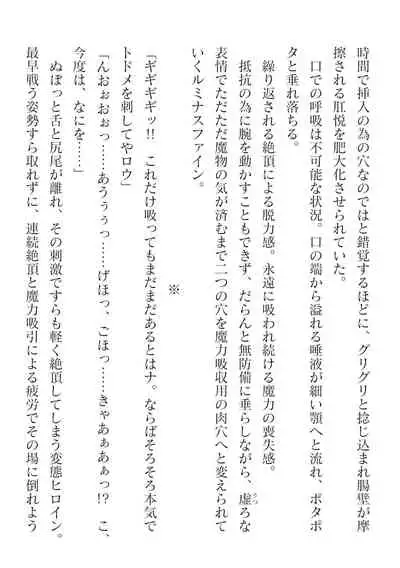 時間で挿入の為の穴なのではと錯覚するほどに、グリグリと捻じ込まれ腸壁が摩
擦される肛悦を肥大化させられていた。
口での呼吸は不可能な状況。口の端から溢れる唾液が細い顎へと流れ、ポタポ
タと垂れ落ちる。
繰り返される絶頂による脱力感。永遠に吸われ続ける魔力の喪失感。
抵抗の為に腕を動かすこともできず、だらんと無防備に垂らしながら、虚うつろな
表情でただただ魔物の気が済むまで二つの穴を魔力吸収用の肉穴へと変えられて
いくルミナスファイン。
※
「ギギギギッ!!　これだけ吸ってもまだまだあるとはナ。ならばそろそろ本気で
トドメを刺してやロウ」
「んおぉおぉっ……あうぅぅっ……げほっ、ごほっ……きゃあぁあぁっ!?　こ、
今度は、なにを……」
ぬぽっと舌と尻尾が離れ、その刺激ですらも軽く絶頂してしまう変態ヒロイン。
最早戦う姿勢すら取れずに、連続絶頂と魔力吸引による疲労でその場に倒れよう